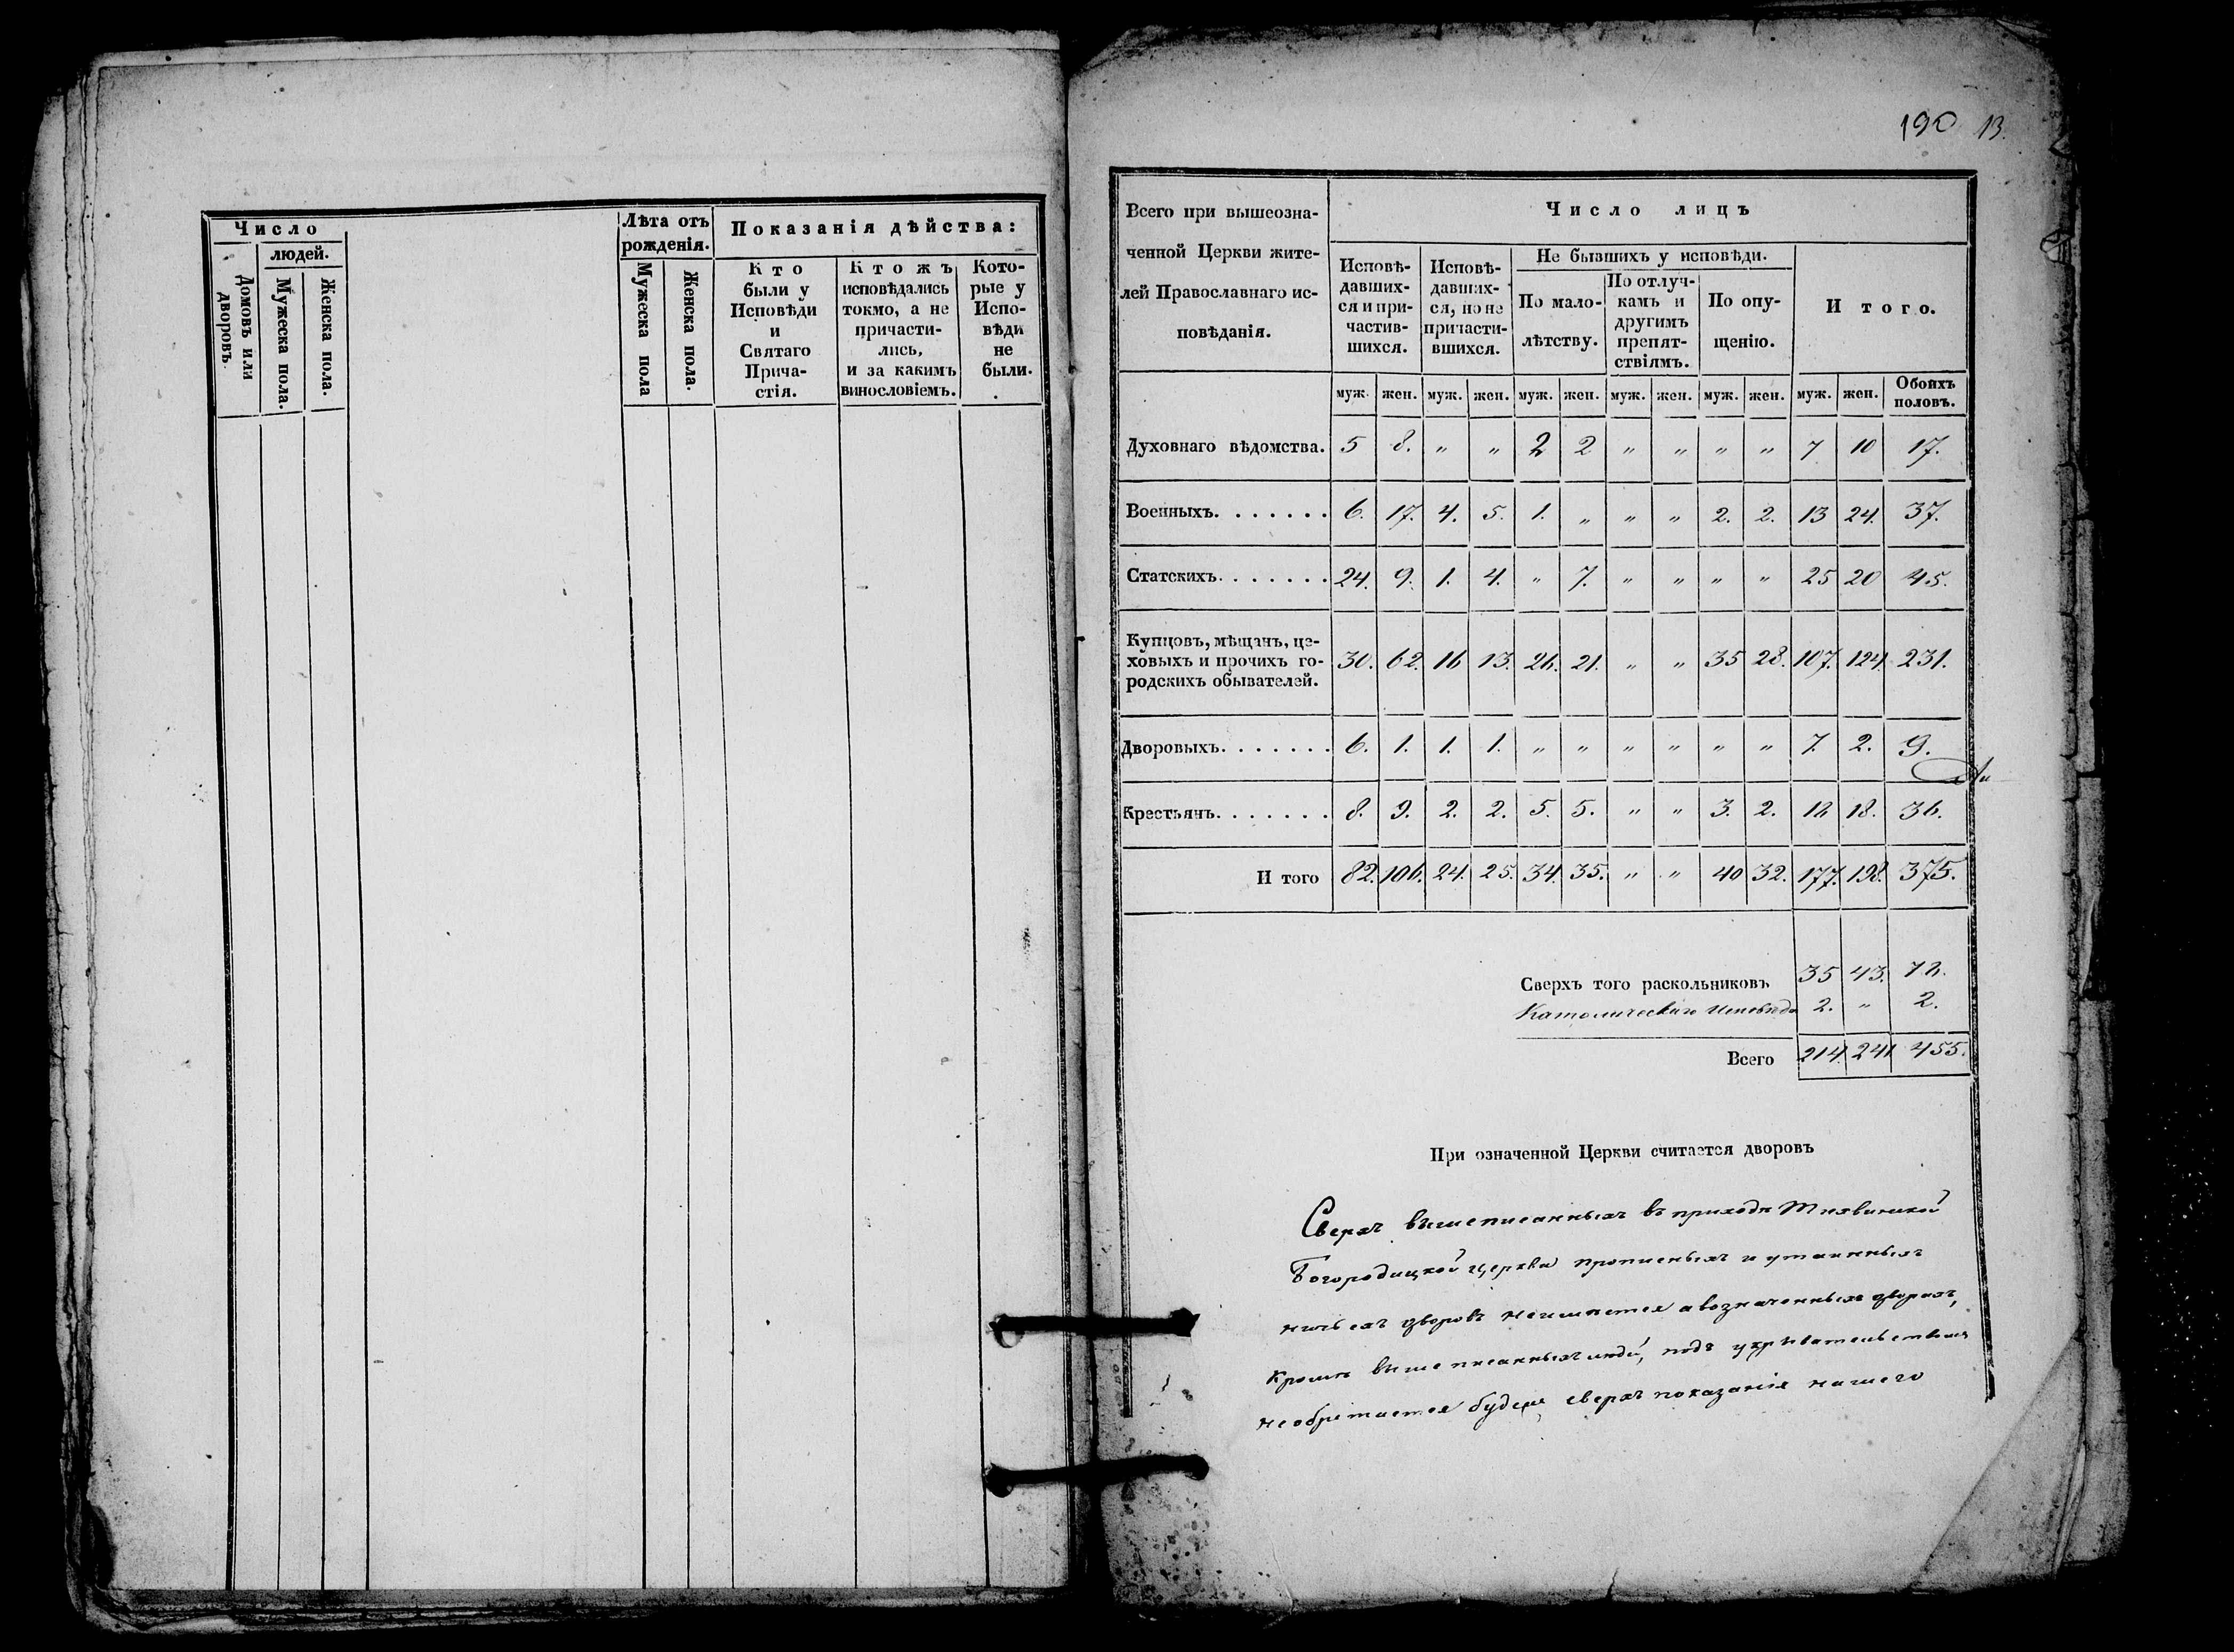 Число
людей.
Домовъ или дворовъ.
Мужеска пола.
Женска пола.
Лѣта отъ рожденія.
Мужеска пола
Женска пола.
Показанія дѣйства:
Кто
были у
Исповѣди
и
Святаго
Прича-
стія.
Ктожъ
исповѣдались
токмо, а не
причасти-
лись,
и за какимъ
винословіемъ.
Кото-
рые у
Испо-
вѣди
не
были.
190 13.
Всего при вышеозна-
ченной Церкви жите-
лей Православнаго ис-
повѣданія.
Число лицъ
Исповѣ-
давших-
ся и при-
частив-
шихся.
Исповѣ-
давших-
ся, но не
причасти-
вшихся.
Не бывшихъ у исповѣди.
По мало-
лѣтству.
По отлуч-
камъ и
другимъ
препят-
ствіямъ.
По опу-
щенію.
Итого.
муж. жен. муж. жен. муж. жен. муж. жен. муж. жен. муж. жен. Обоихъ половъ.
Духовнаго вѣдомства. 5 8. " " 2 2 " " " " 7 10 17.
Военныхъ. . . . . . . 6. 17. 4. 5. 1. " " " 2. 2. 13 24. 37.
Статскихъ. . . . . . . 24. 9. 1. 4. " 7. " " " " 25 20 45.
Купцовъ, мѣщанъ, це-
ховыхъ и прочихъ го-
родскихъ обывателей.
30. 62. 16 13. 26. 21. " " 35 28. 107. 124. 231.
Дворовыхъ. . . . . . . 6. 1. 1. 1. " " " " " " 7. 2. 9.
Крестьянъ. . . . . . . 8. 9. 2. 2. 5. 5. " " 3. 2. 18 18. 36.
Итого 82. 106. 24. 25. 34. 35. " " 40 32. 177. 198. 375.
Сверхъ того раскольниковъ 35 43. 78.
Католическаго Исповѣда 2. " 2.
Всего 214. 241 455.
При означенной Церкви считается дворовъ
Сверхъ вышеписанныхъ въ приходѣ Тихвинской
Богородицкой церкви прописныхъ и утаенныхъ
ничьихъ дворовъ неимѣется а возначенныхъ дворахъ,
кромѣ вышеписанныхъ людей, подъ укрывательствомъ
необрѣтается будеже сверхъ показанія нашего